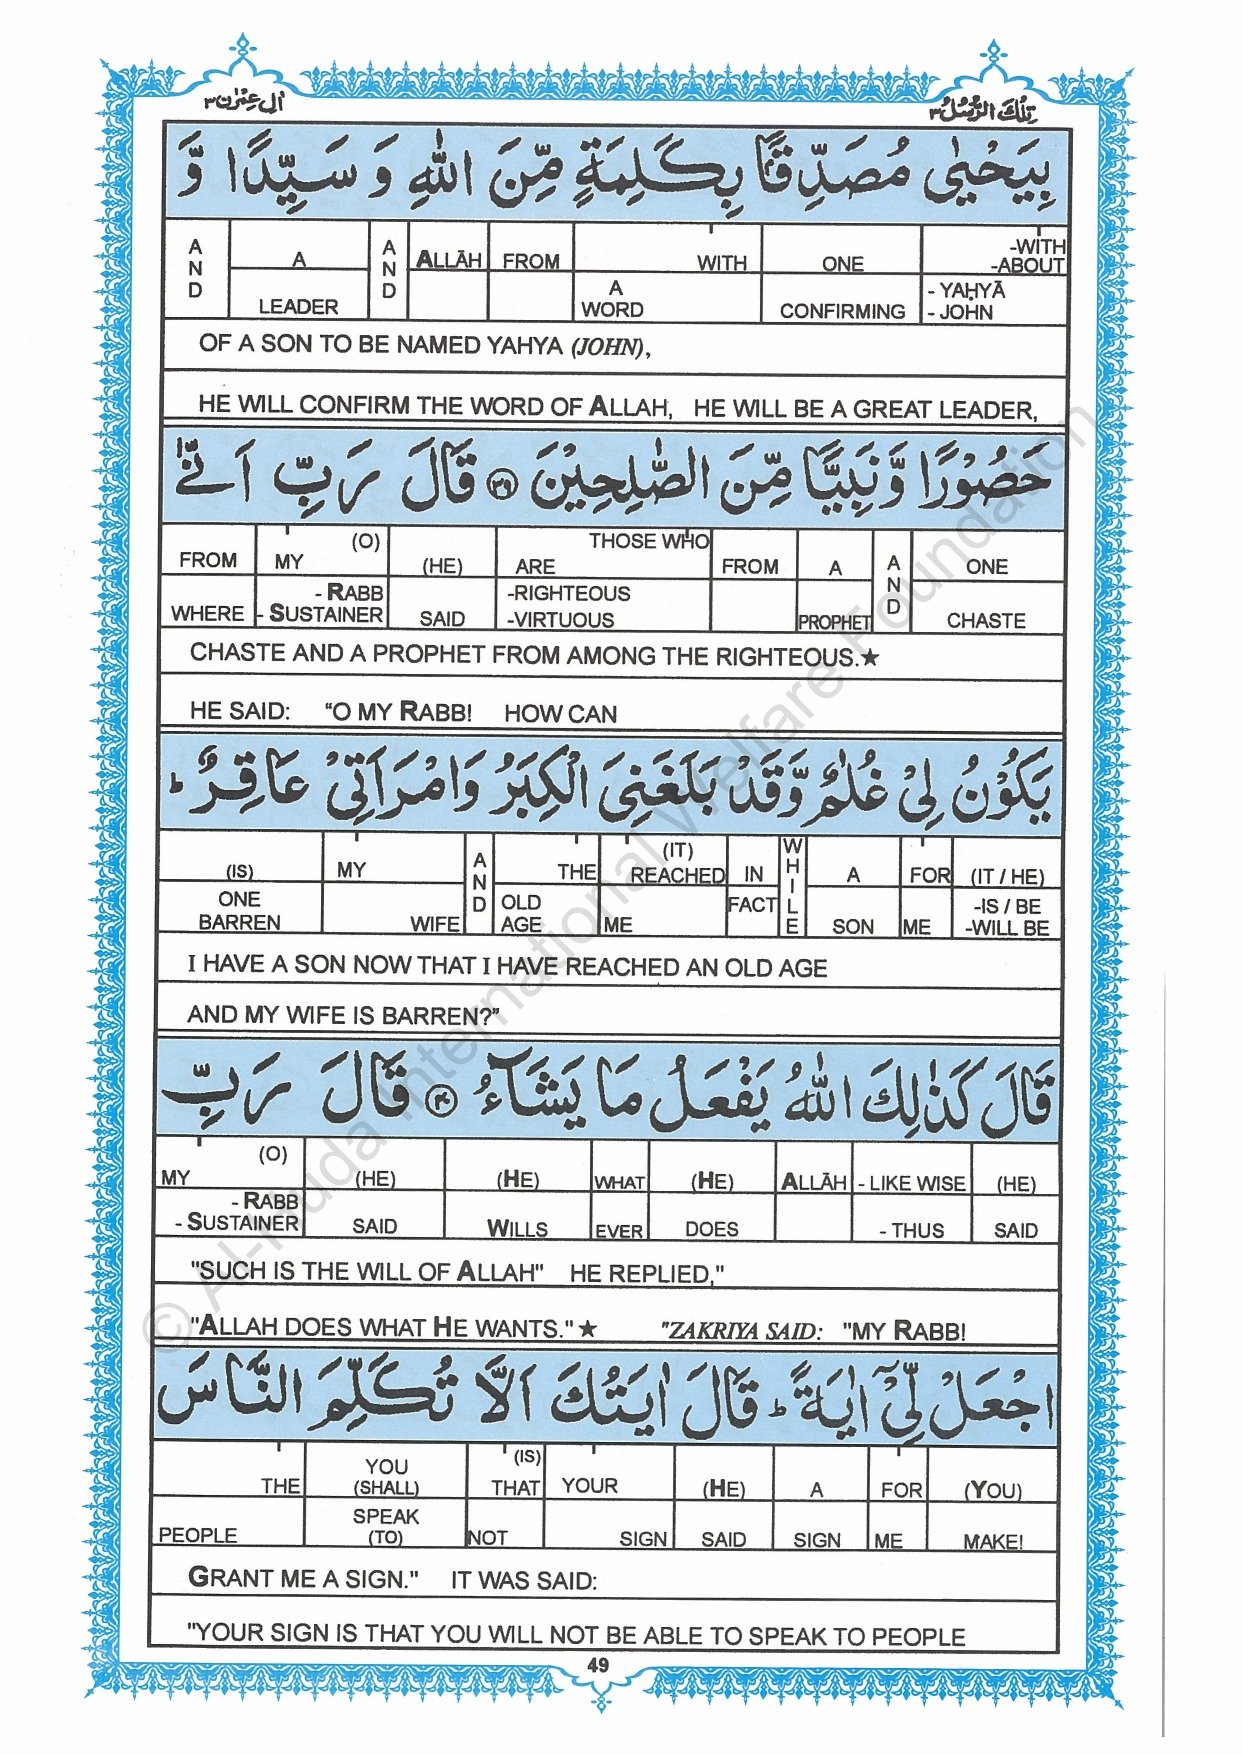 اٰل عِمْرٰن ٣
تِلْكَ الرُّسُلُ ٣
بِيَحْيٰى مُصَدِّقًۢا بِكَلِمَةٍ مِّنَ اللّٰهِ وَ سَيِّدًا وَّ
AND A AND ALLĀH FROM WITH ONE -WITH -ABOUT
LEADER A WORD CONFIRMING - YAḤYĀ - JOHN
OF A SON TO BE NAMED YAHYA (JOHN),
HE WILL CONFIRM THE WORD OF ALLAH, HE WILL BE A GREAT LEADER,
حَصُوْرًا وَّ نَبِيًّا مِّنَ الصّٰلِحِيْنَ ٣٩ قَالَ رَبِّ اَنّٰى
FROM MY (O) (HE) THOSE WHO ARE FROM A AND ONE
WHERE - RABB - SUSTAINER SAID -RIGHTEOUS -VIRTUOUS PROPHET CHASTE
CHASTE AND A PROPHET FROM AMONG THE RIGHTEOUS.★
HE SAID: "O MY RABB! HOW CAN
يَكُوْنُ لِيْ غُلٰمٌ وَّقَدْ بَلَغَنِيَ الْكِبَرُ وَامْرَاَتِيْ عَاقِرٌ ؕ
(IS) MY AND THE (IT) REACHED IN WHILE A FOR (IT / HE)
ONE BARREN WIFE OLD AGE ME FACT SON ME -IS / BE -WILL BE
I HAVE A SON NOW THAT I HAVE REACHED AN OLD AGE
AND MY WIFE IS BARREN?"
قَالَ كَذٰلِكَ اللّٰهُ يَفْعَلُ مَا يَشَآءُ ٤٠ قَالَ رَبِّ
MY (O) (HE) (HE) WHAT (HE) ALLĀH - LIKE WISE (HE)
- RABB - SUSTAINER SAID WILLS EVER DOES - THUS SAID
"SUCH IS THE WILL OF ALLAH" HE REPLIED,"
"ALLAH DOES WHAT HE WANTS."★ "ZAKRIYA SAID: "MY RABB!
اجْعَلْ لِّيْٓ اٰيَةً ؕ قَالَ اٰيَتُكَ اَلَّا تُكَلِّمَ النَّاسَ
THE YOU (SHALL) (IS) THAT YOUR (HE) A FOR (YOU)
PEOPLE SPEAK (TO) NOT SIGN SAID SIGN ME MAKE!
GRANT ME A SIGN." IT WAS SAID:
"YOUR SIGN IS THAT YOU WILL NOT BE ABLE TO SPEAK TO PEOPLE
49
© Al-Huda International Welfare Foundation